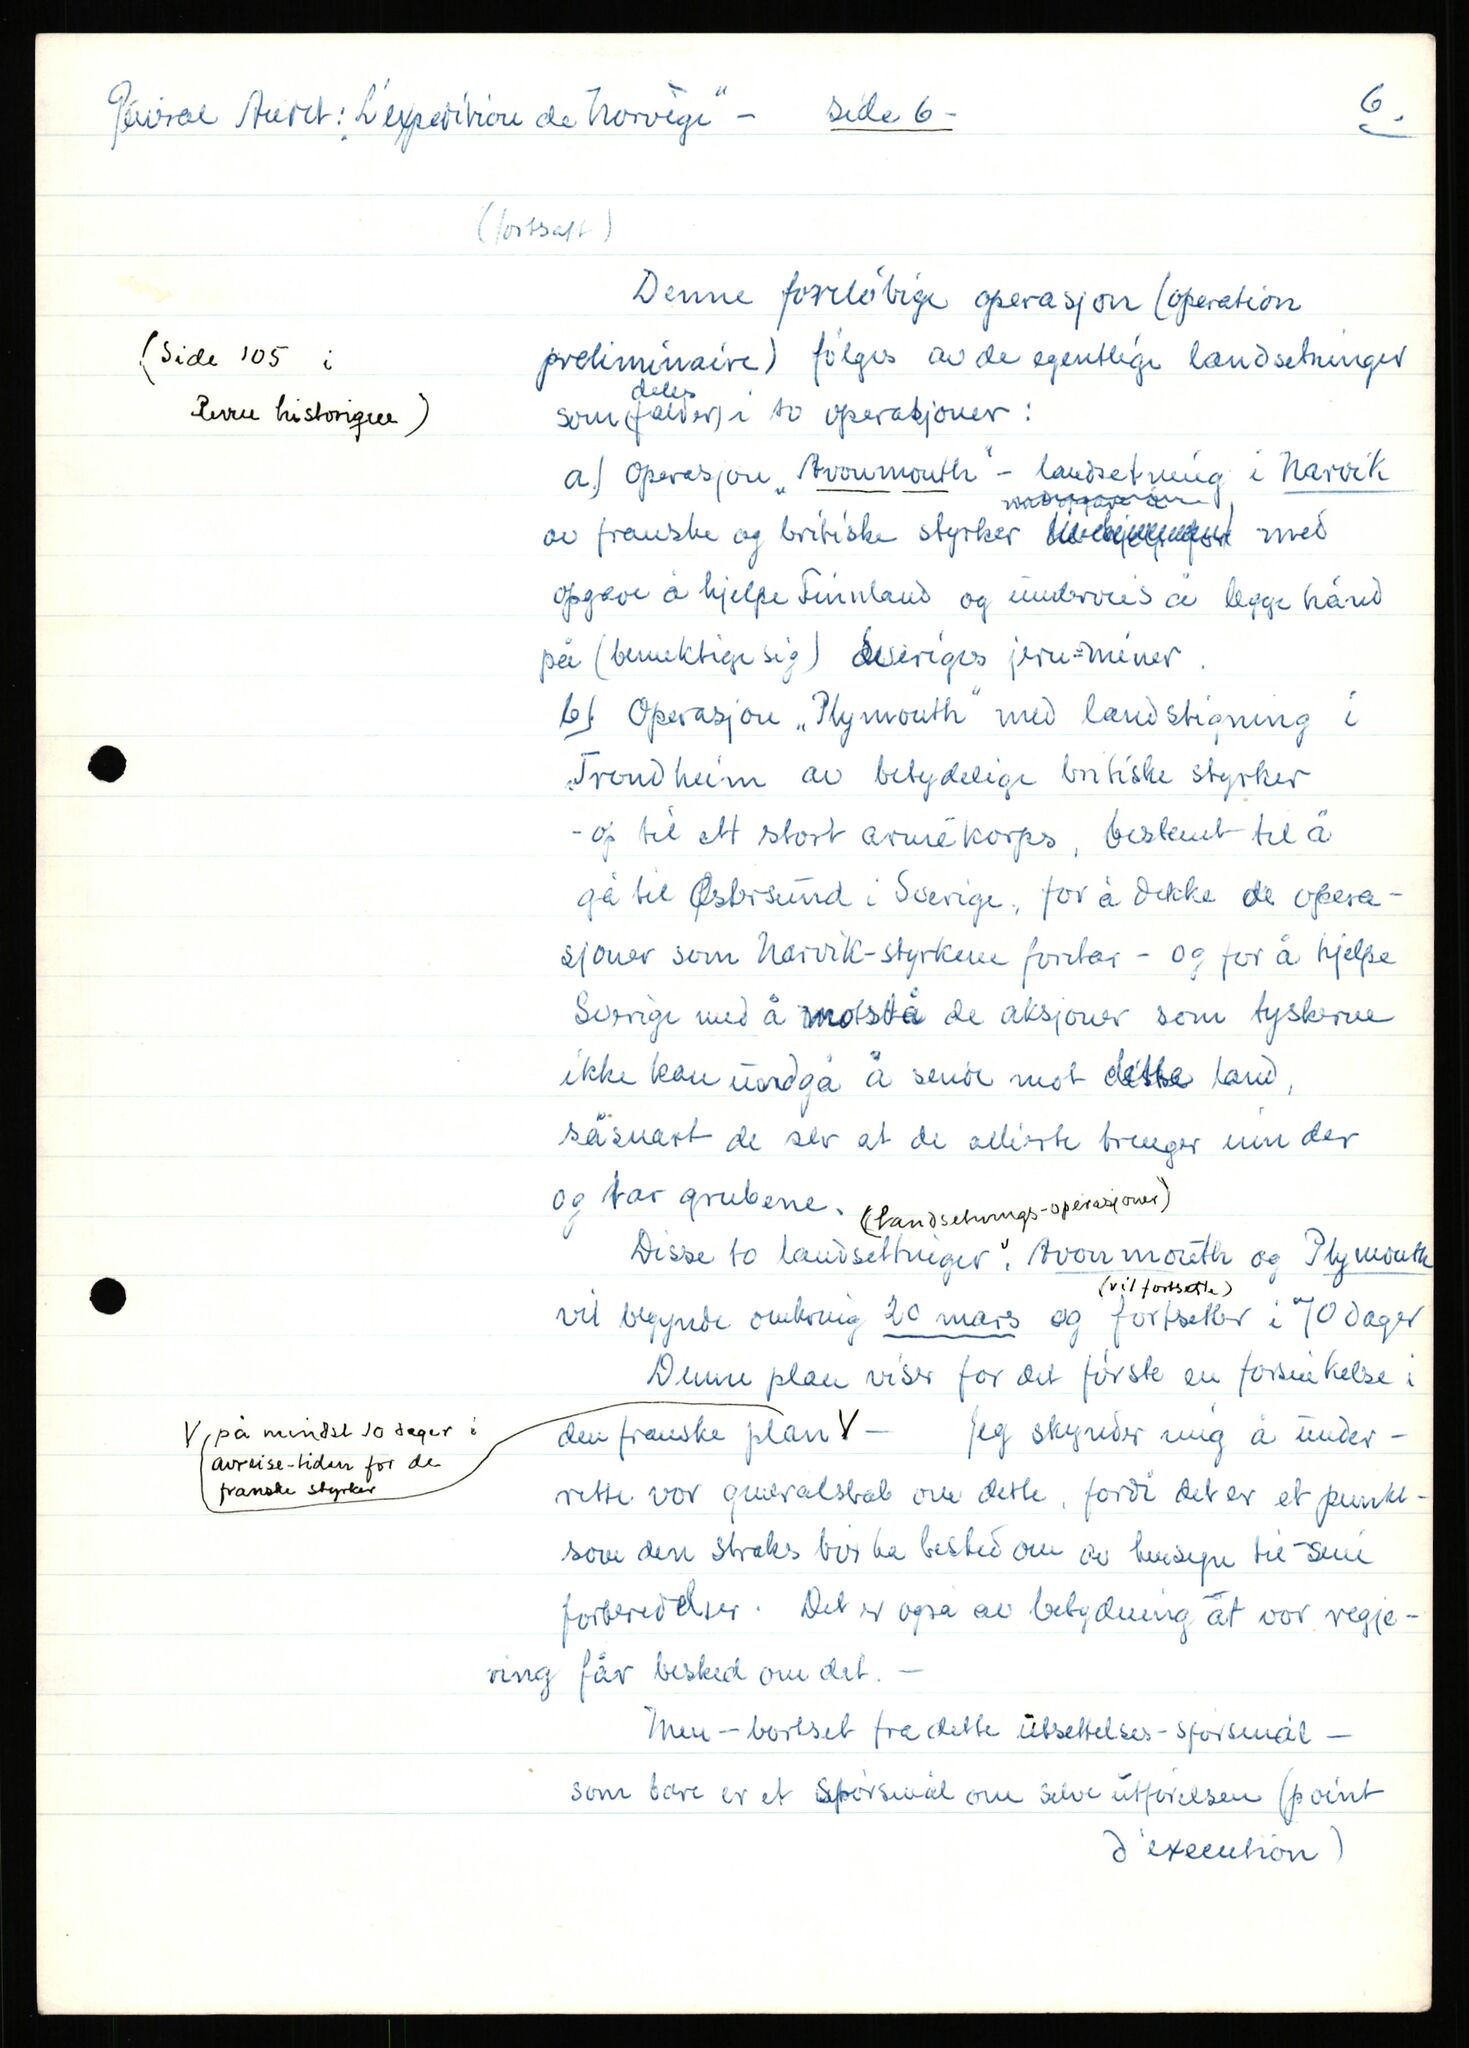 Général Audet: L'expedition de Norvège" - side 6 -
6.
(fortsatt)
Denne foreløbige operasjon (operation
(Side 105 i
Revue historique)
preliminaire) følges av de egentlige landsetninger
deles
som (falder) i to operasjoner:
a) Operasjon „Avonmouth" - landsetning i Narvik
av franske og britiske styrker med
opgave å hjelpe Finnland og underveis å legge hånd
på (bemektige sig) Sveriges jern=miner.
b) Operasjon „Plymouth" med landstigning i
Trondheim av betydelige britiske styrker
- op til ett stort armékorps, bestemt til å
gå til Østersund i Sverige, for å dekke de opera-
sjoner som Narvik-styrkene foretar - og for å hjelpe
Sverige med å motstå de aksjoner som tyskerne
ikke kan undgå å sende mot dette land,
såsnart de ser at de allierte trenger inn der
og tar grubene.
(landsetnings-operasjoner)
Disse to landsettninger", Avonmouth og Plymouth
(vil fortsette)
vil begynde omkring 20 mars og fortsetter i 70 dager
Denne plan viser for det første en forsinkelse i
den franske plan V - Jeg skynder mig å under-
V på mindst 10 dager i
avreise-tiden for de
franske styrker
rette vor generalstab om dette, fordi det er et punkt
som den straks bør ha besked om av hensyn til sine
forberedelser. Det er også av betydning at vor regje-
ring får besked om det. -
Men - bortset fra dette utsettelses-spørsmål -
som bare er et spørsmål om selve utførelsen (point
d'execution)